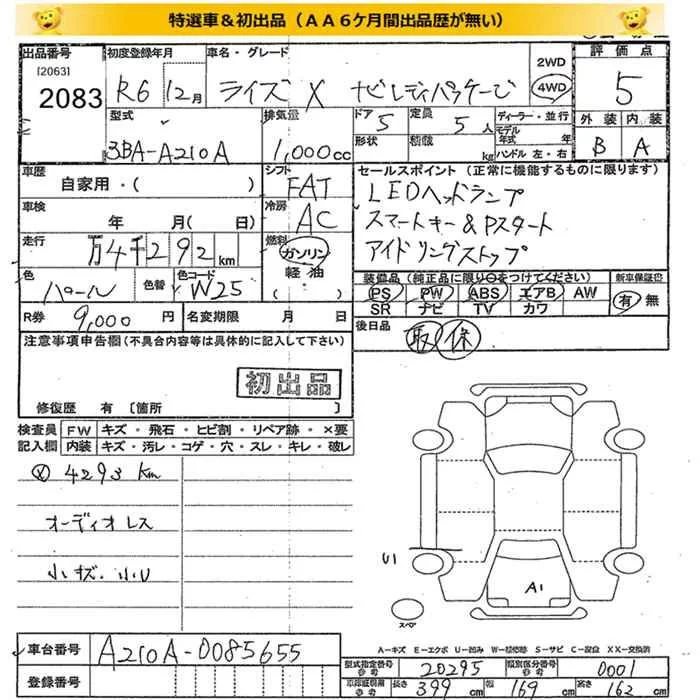 特選車＆初出品（ＡＡ６ケ月間出品歴が無い）
出品番号 初度登録年月 車名・グレード 2WD 評価点
[2063] 2083 R6 12月 ライズ X 4WD 5
型式 排気量 ドア 5 定員 5人 ディーラー・並行 外装 内装
3BA-A210A 1,000cc 形状 積載 kg モデル年式 年 ハンドル 左・右 B A
車歴 シフト セールスポイント（正常に機能するものに限ります）
自家用・( ) FAT LEDヘッドランプ
車検 冷房 スマートキー＆Pスタート
年 月( 日) AC アイドリングストップ
走行 燃料
万4千292km ガソリン
軽油
( ・ )
色 色替 色コード 装備品（純正品に限り○をつけてください） 新車保証書
パール W25 PS PW ABS エアB AW 有 無
SR ナビ TV カワ
R券 9,000円 名変期限 月 日 後日品 取 保
注意事項申告欄（不具合内容等は具体的に記入して下さい）
初出品
修復歴 有〔箇所 〕
検査員 FW キズ・飛石・ヒビ割・リペア跡・×要
記入欄 内装 キズ・汚レ・コゲ・穴・スレ・キレ・破レ
4293 Km
オーディオレス
小キズ・小U
U1
A1
スペア
A－キズ E－エクボ U－凹ミ W－補修跡 S－サビ C－腐食 XX－交換済
車台番号 A210A-0085655
型式指定番号 参考 20295 類別区分番号 参考 0001
登録番号 車庫証明用 参考 長さ 399 cm 幅 169 cm 高さ 162 cm